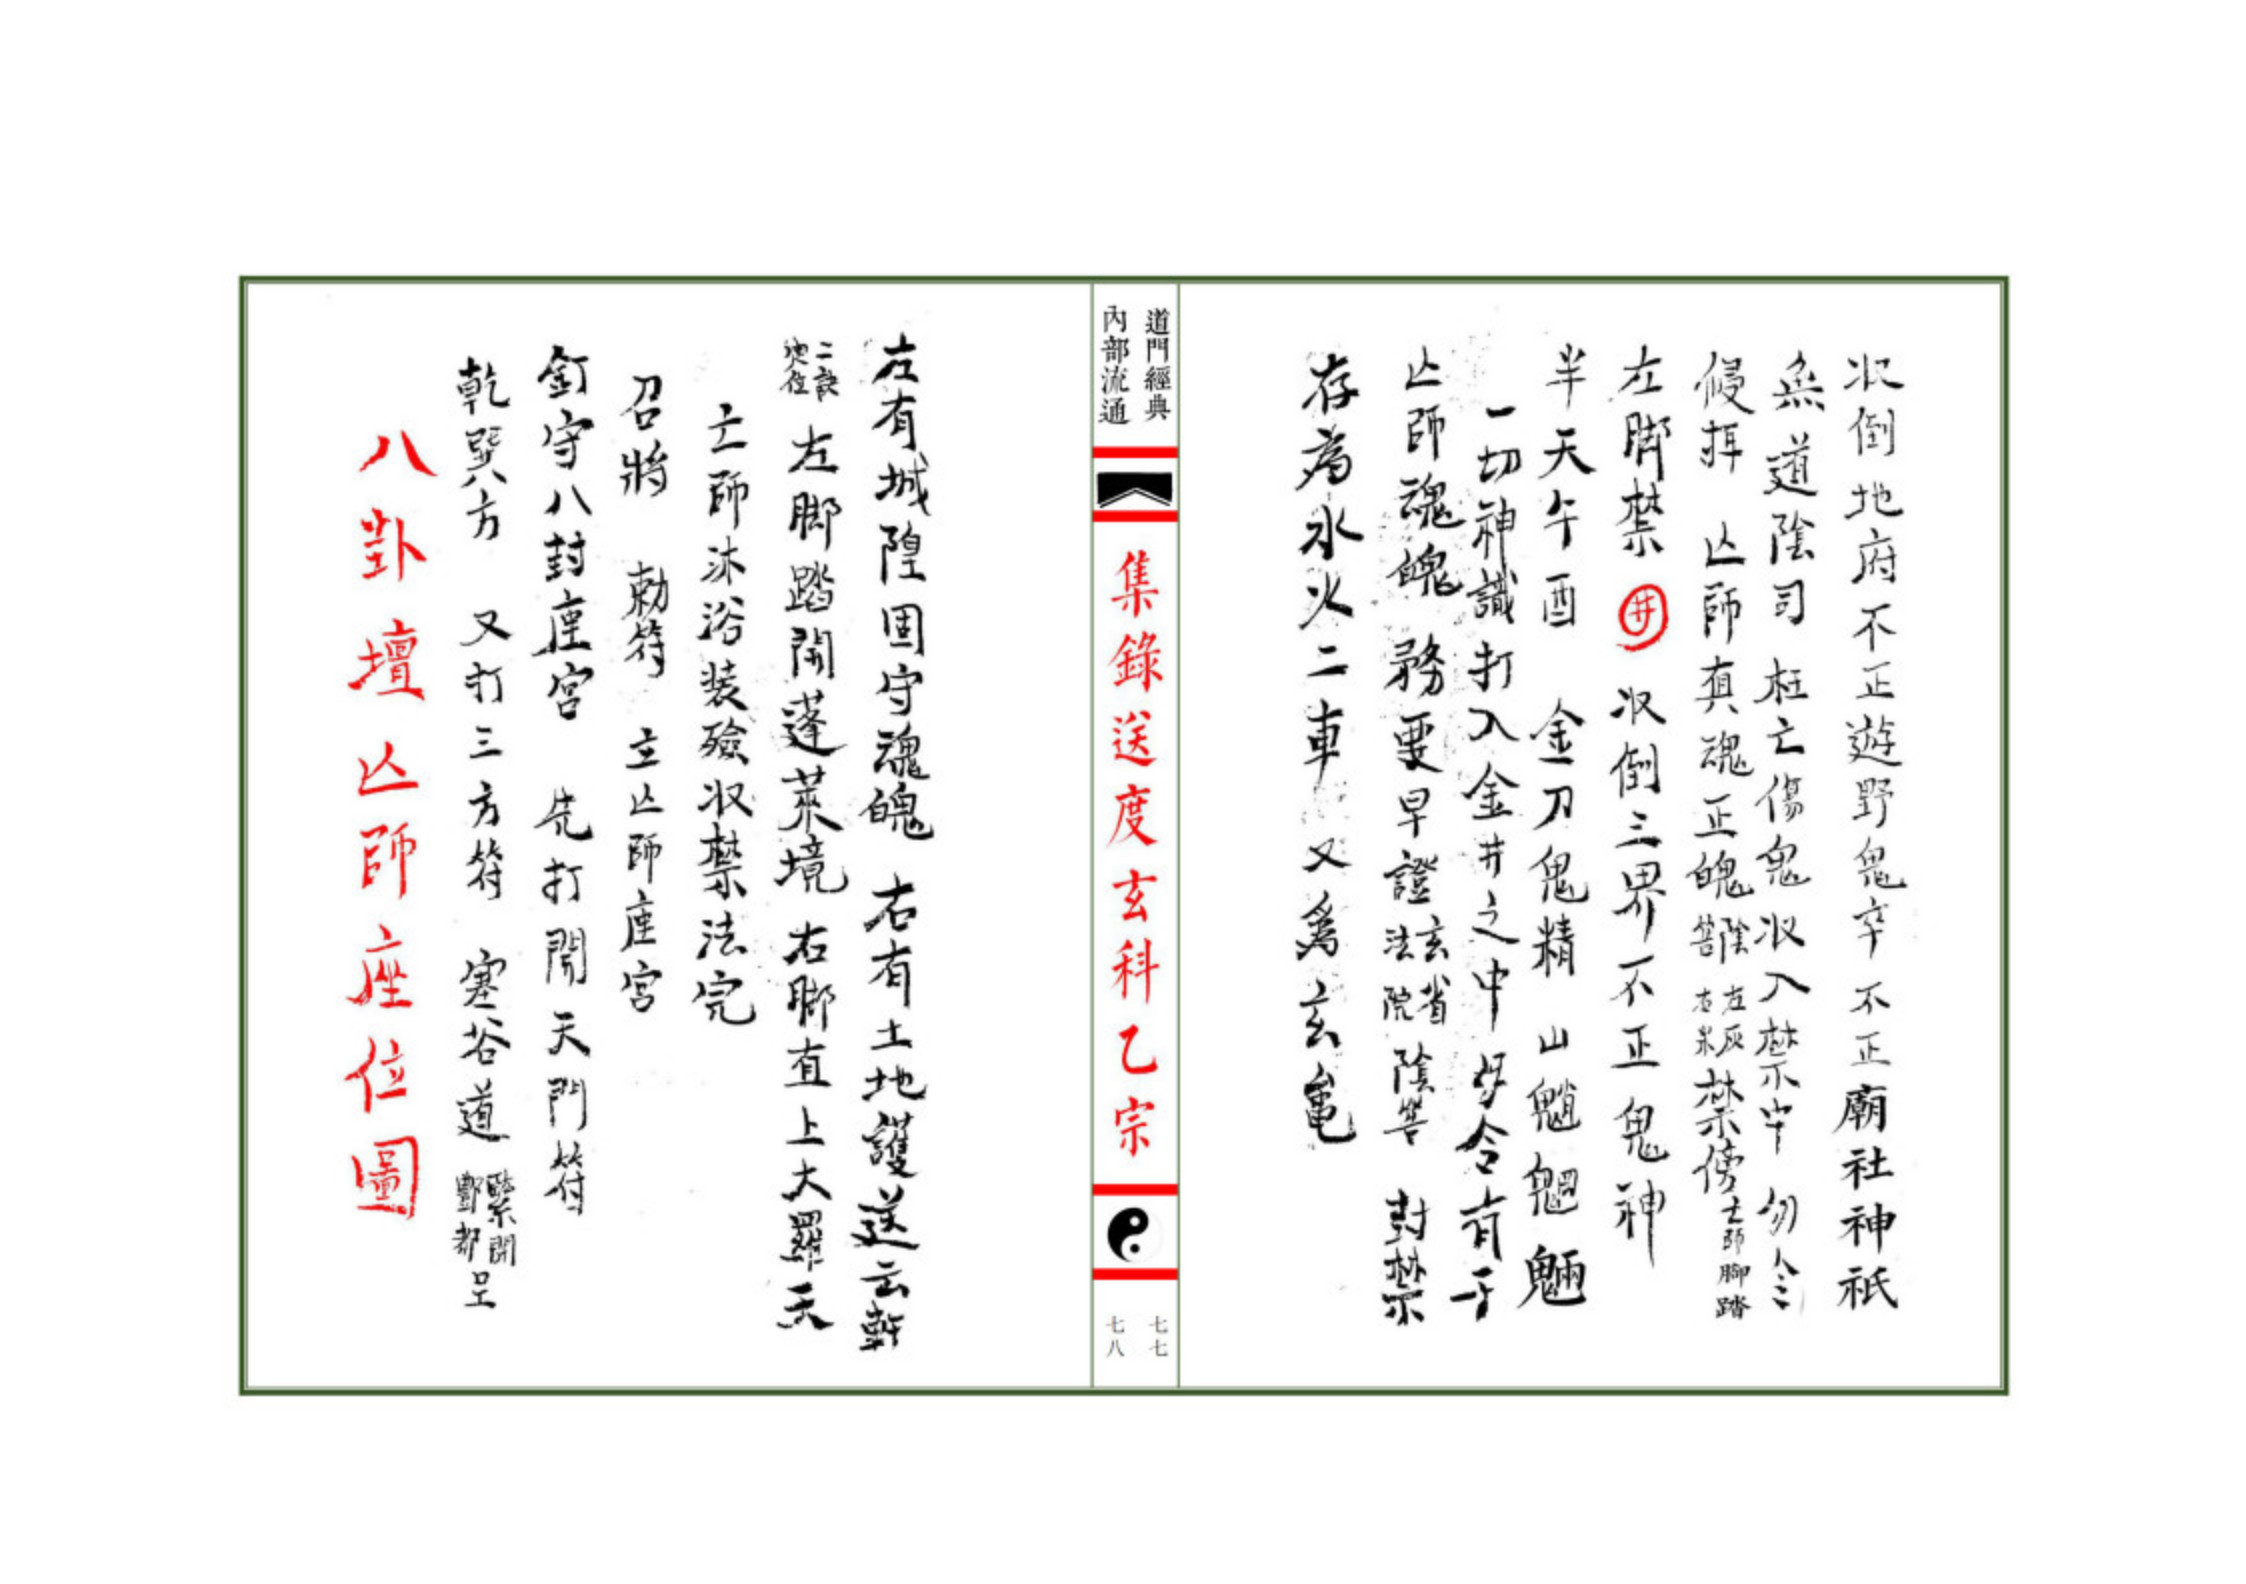 収倒地府不正遊野鬼卒不正廟社神祇
無道陰司枉亡傷鬼収入禁牢勿令
侵捱亾師真魂正魄陰筶左灰右米禁傍士師腳踏
左腳禁井収倒三界不正鬼神
半天午酉金刀鬼精山魈魍魎
一切神識打入金井之中毋令有干
亾師魂魄務要早證玄省法院陰筶封禁
存為水火二車又為玄龜
道門經典
內部流通
集錄送度玄科乙宗
七七
七八
左有城隍固守魂魄右有土地護送云軿
二訣左腳踏開蓬萊境右腳直上大羅天
亡師沐浴裝殮収禁法完
召將勅符立亾師座宮
釘守八封座宮先打開天門符
乾巽方又打三方符塞谷道緊閉酆都呈
八卦壇亾師座位圖